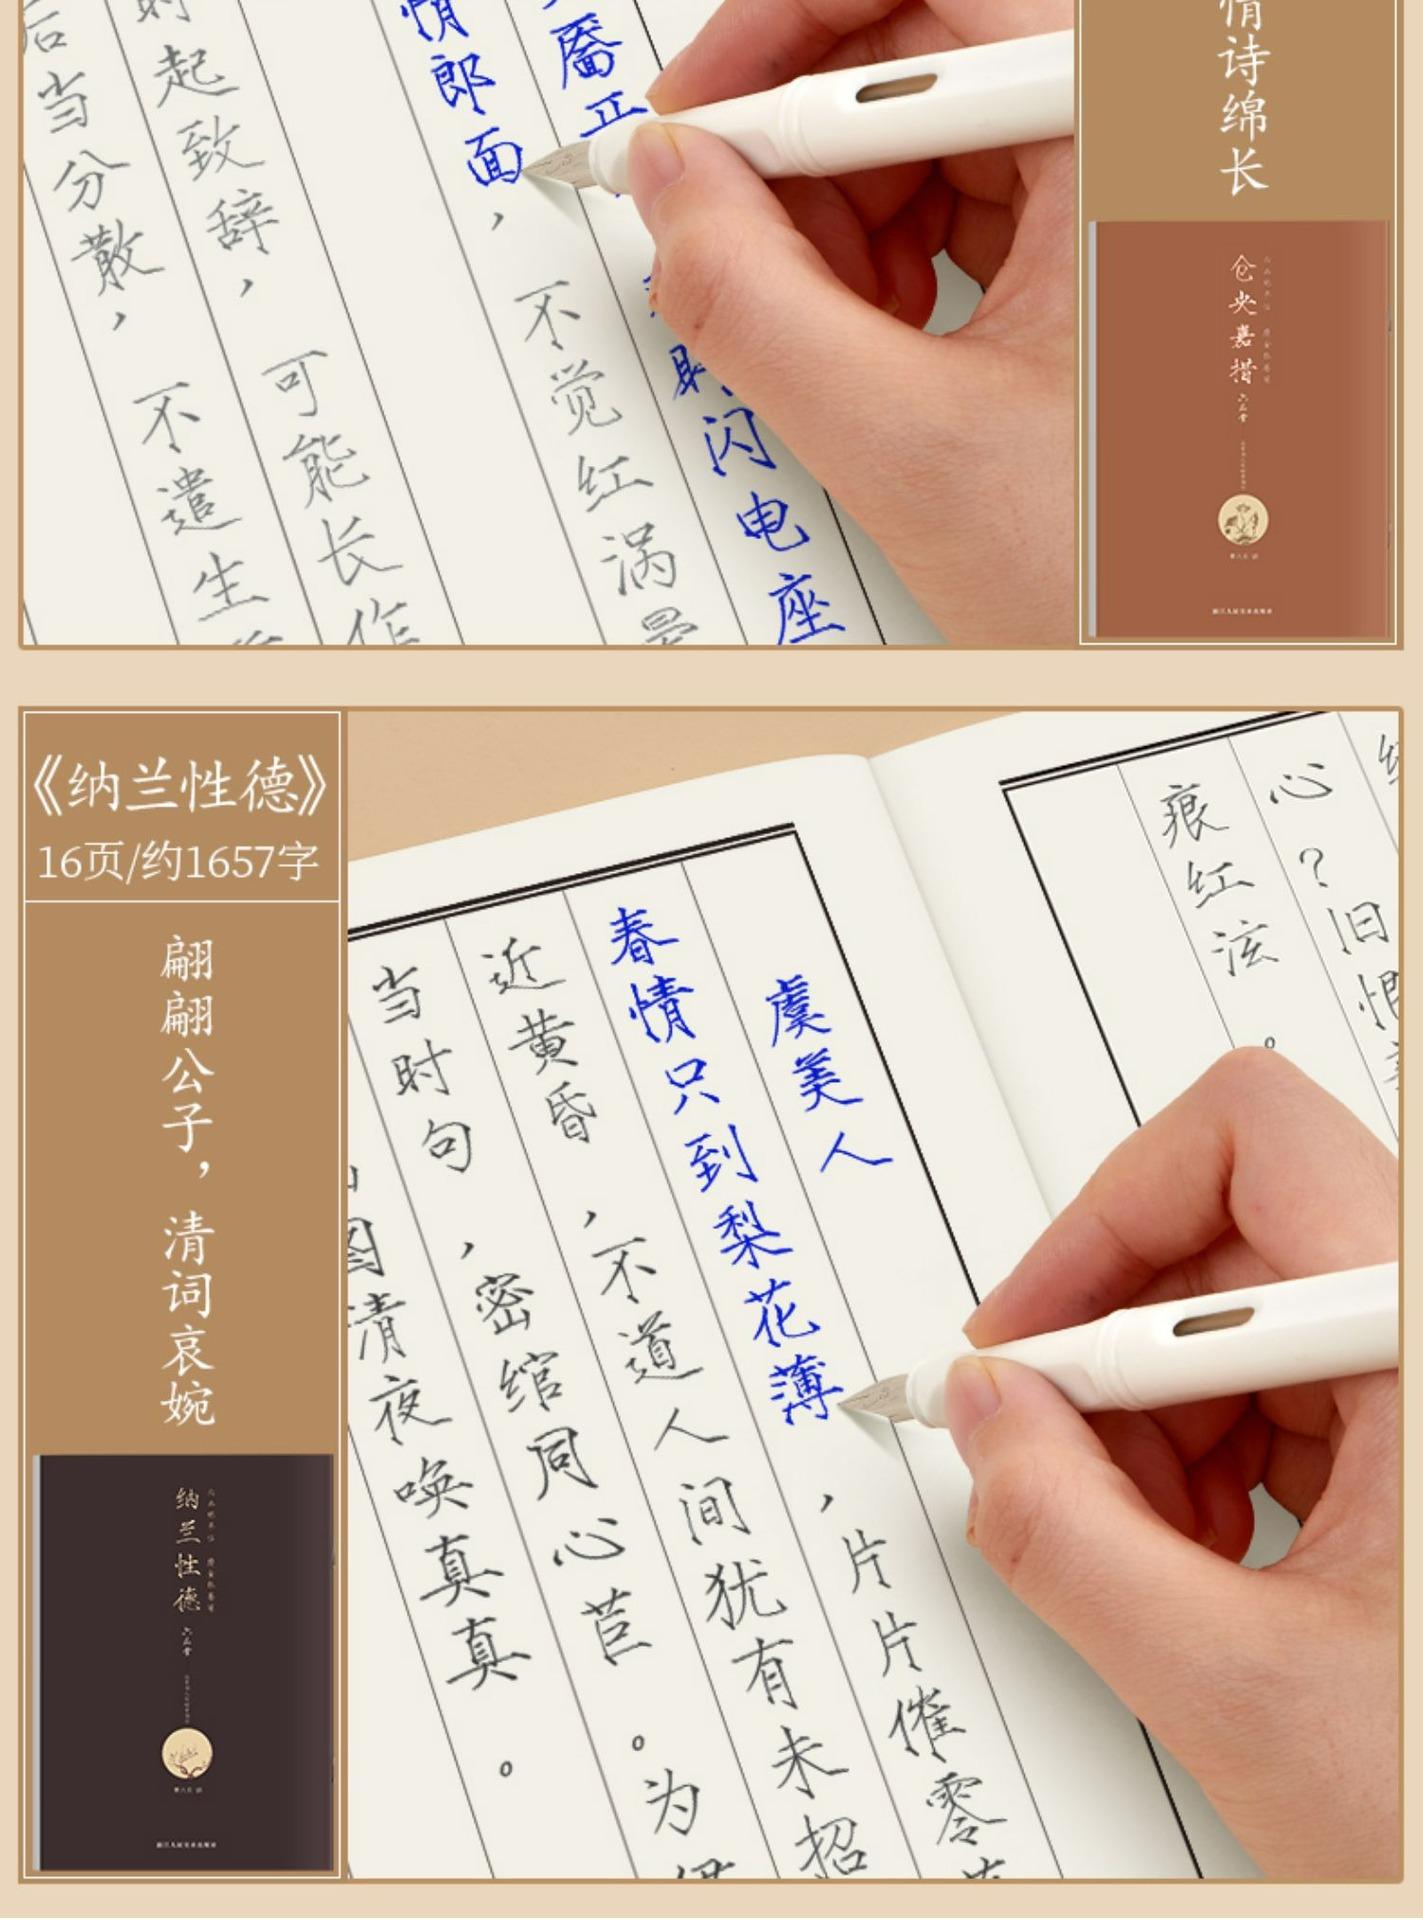 情诗绵长
仓央嘉措
六品堂
靥
闪电座
情郎面，不觉红涡晕
时起致辞，可能长作
后当分散，不遣生
《纳兰性德》
16页/约1657字
翩翩公子，清词哀婉
纳兰性德
六品堂
心？旧恨
痕红泫。
虞美人
春情只到梨花薄，片片催零
近黄昏，不道人间犹有未招
当时句，密绾同心苣。为伊
图清夜唤真真。